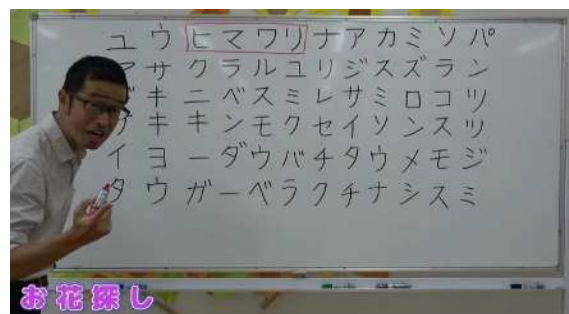 ユウヒマワリナアカミソパ
アサクラルユリジスズラン
キニベスミレサミロコツ
キキンモクセイソンスツ
イヨーダウバチタウメモジ
タウガーベラクチナシスミ
お花探し